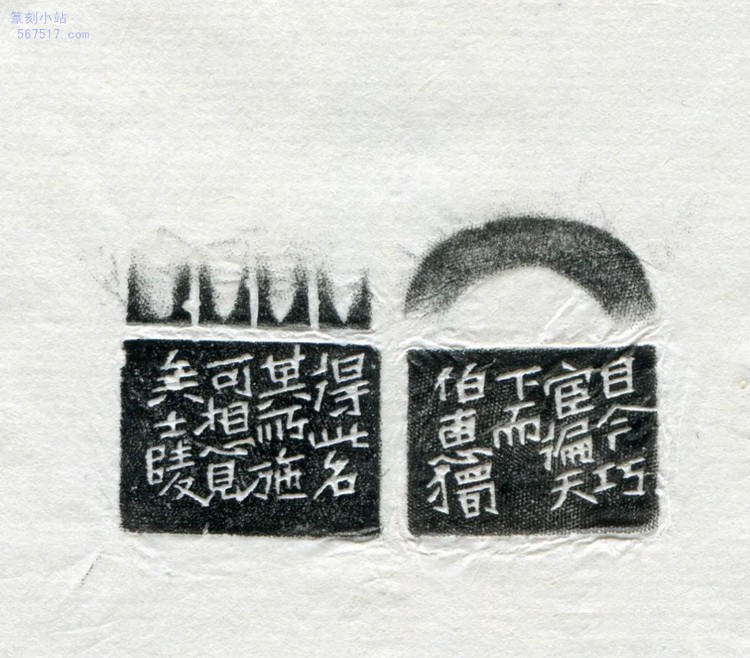 篆刻小站
567517.com
自今巧
宦遍天
下而
伯惠獨
得此名
其所施
可想見
矣士陵